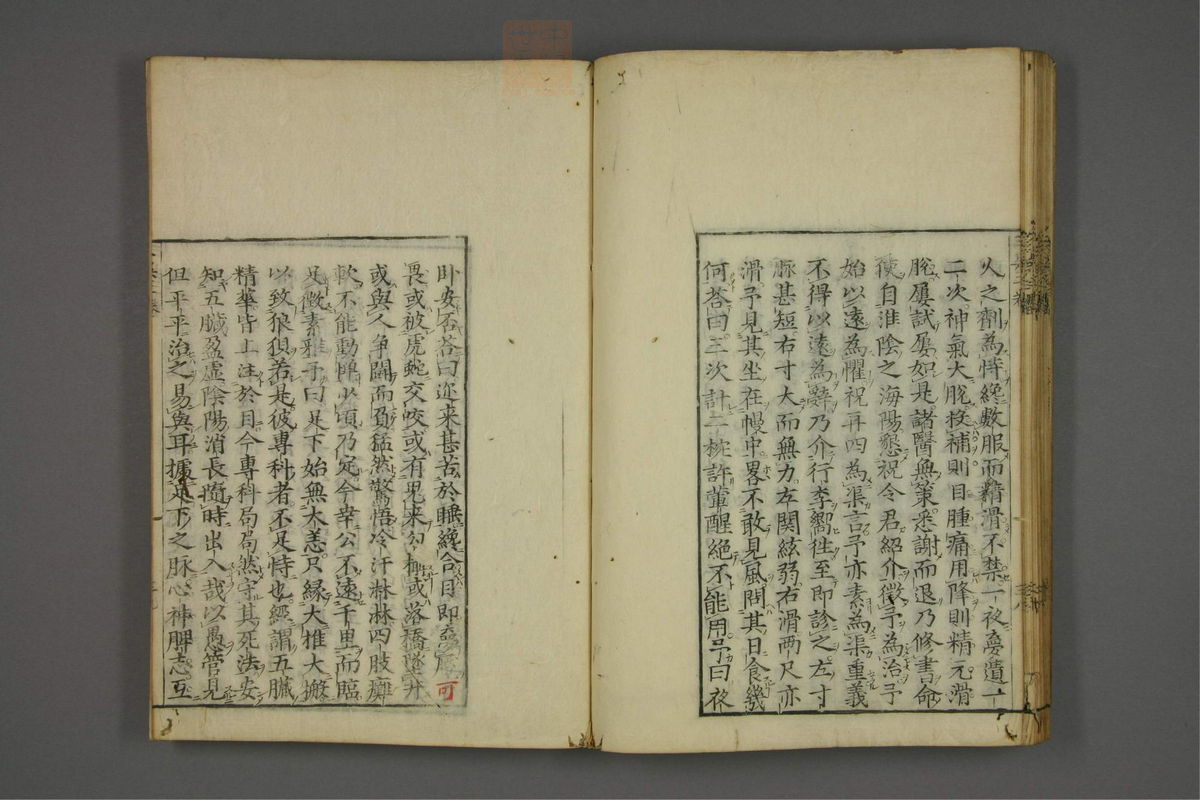 人之劑為恃纔數服而精滑不禁一夜夢遺一
二次神氣大脫投補則目腫痛用降則精元滑
脫屢試屢如是諸醫無策悉謝而退乃修書命
使自淮陰之海陽懇祝令君紹介徵予為治予
始以遠為懼祝再四為渠言予亦素為渠重義
不得以遠為辭乃介行李嚮往至即診之左寸
脈甚短右寸大而無力左関絃弱右滑兩尺亦
滑予見其坐在幔中畧不敢見風問其日食幾
何答曰三次計二椀許葷醒絕不能用予曰夜
卧安否荅曰迩来甚苦於睡纔合目即
畏或被虎蛇交咬或有鬼来勾摂或落橋墜井
或與人爭鬪而負猛然驚悟冷汗淋淋四肢癱
軟不能動惮少頃乃定今幸公不遠千里而臨
足徵素雅予曰足下始無大恙只縁大推大搬
以致狼狽若是彼專科者不足恃也經謂五臟
精華皆上注於目今專科局局然守其死法安
知五臟盈虛陰陽消長隨時出入哉以愚管見
但平平治之易與耳據足下之脉心神脾志互
可